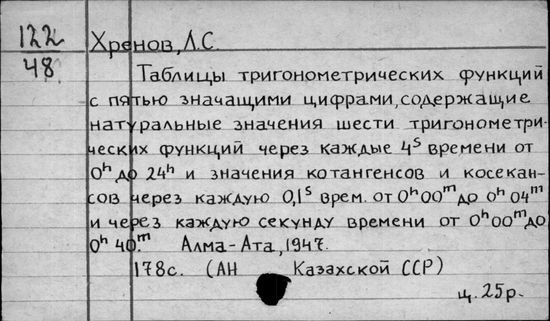 122
48
Хренов, Л.С.
Таблицы тригонометрических функций
с пятью значащими цифрами, содержащие
натуральные значения шести тригонометри-
ческих функций через каждые 4ˢ времени от
0ʰ до 24ʰ и значения котангенсов и косекан-
сов через каждую 0,1ˢ врем. от 0ʰ00ᵐ до 0ʰ04ᵐ
и через каждую секунду времени от 0ʰ00ᵐ до
0ʰ 40ᵐ. Алма-Ата, 1947.
178с. (АН Казахской ССР)
ц. 25р.